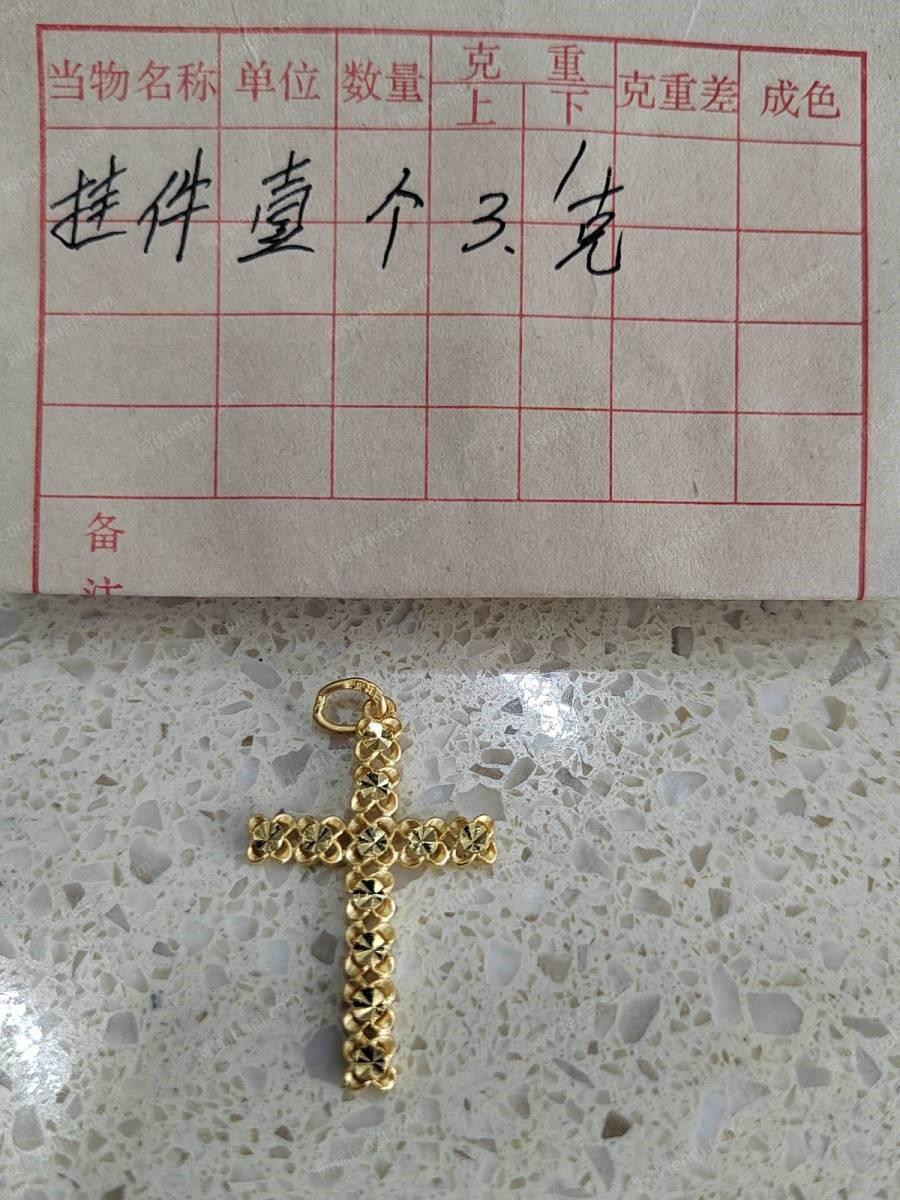 当物名称 单位 数量 克 重 克重差 成色
上 下
挂件壹个3.1克
备